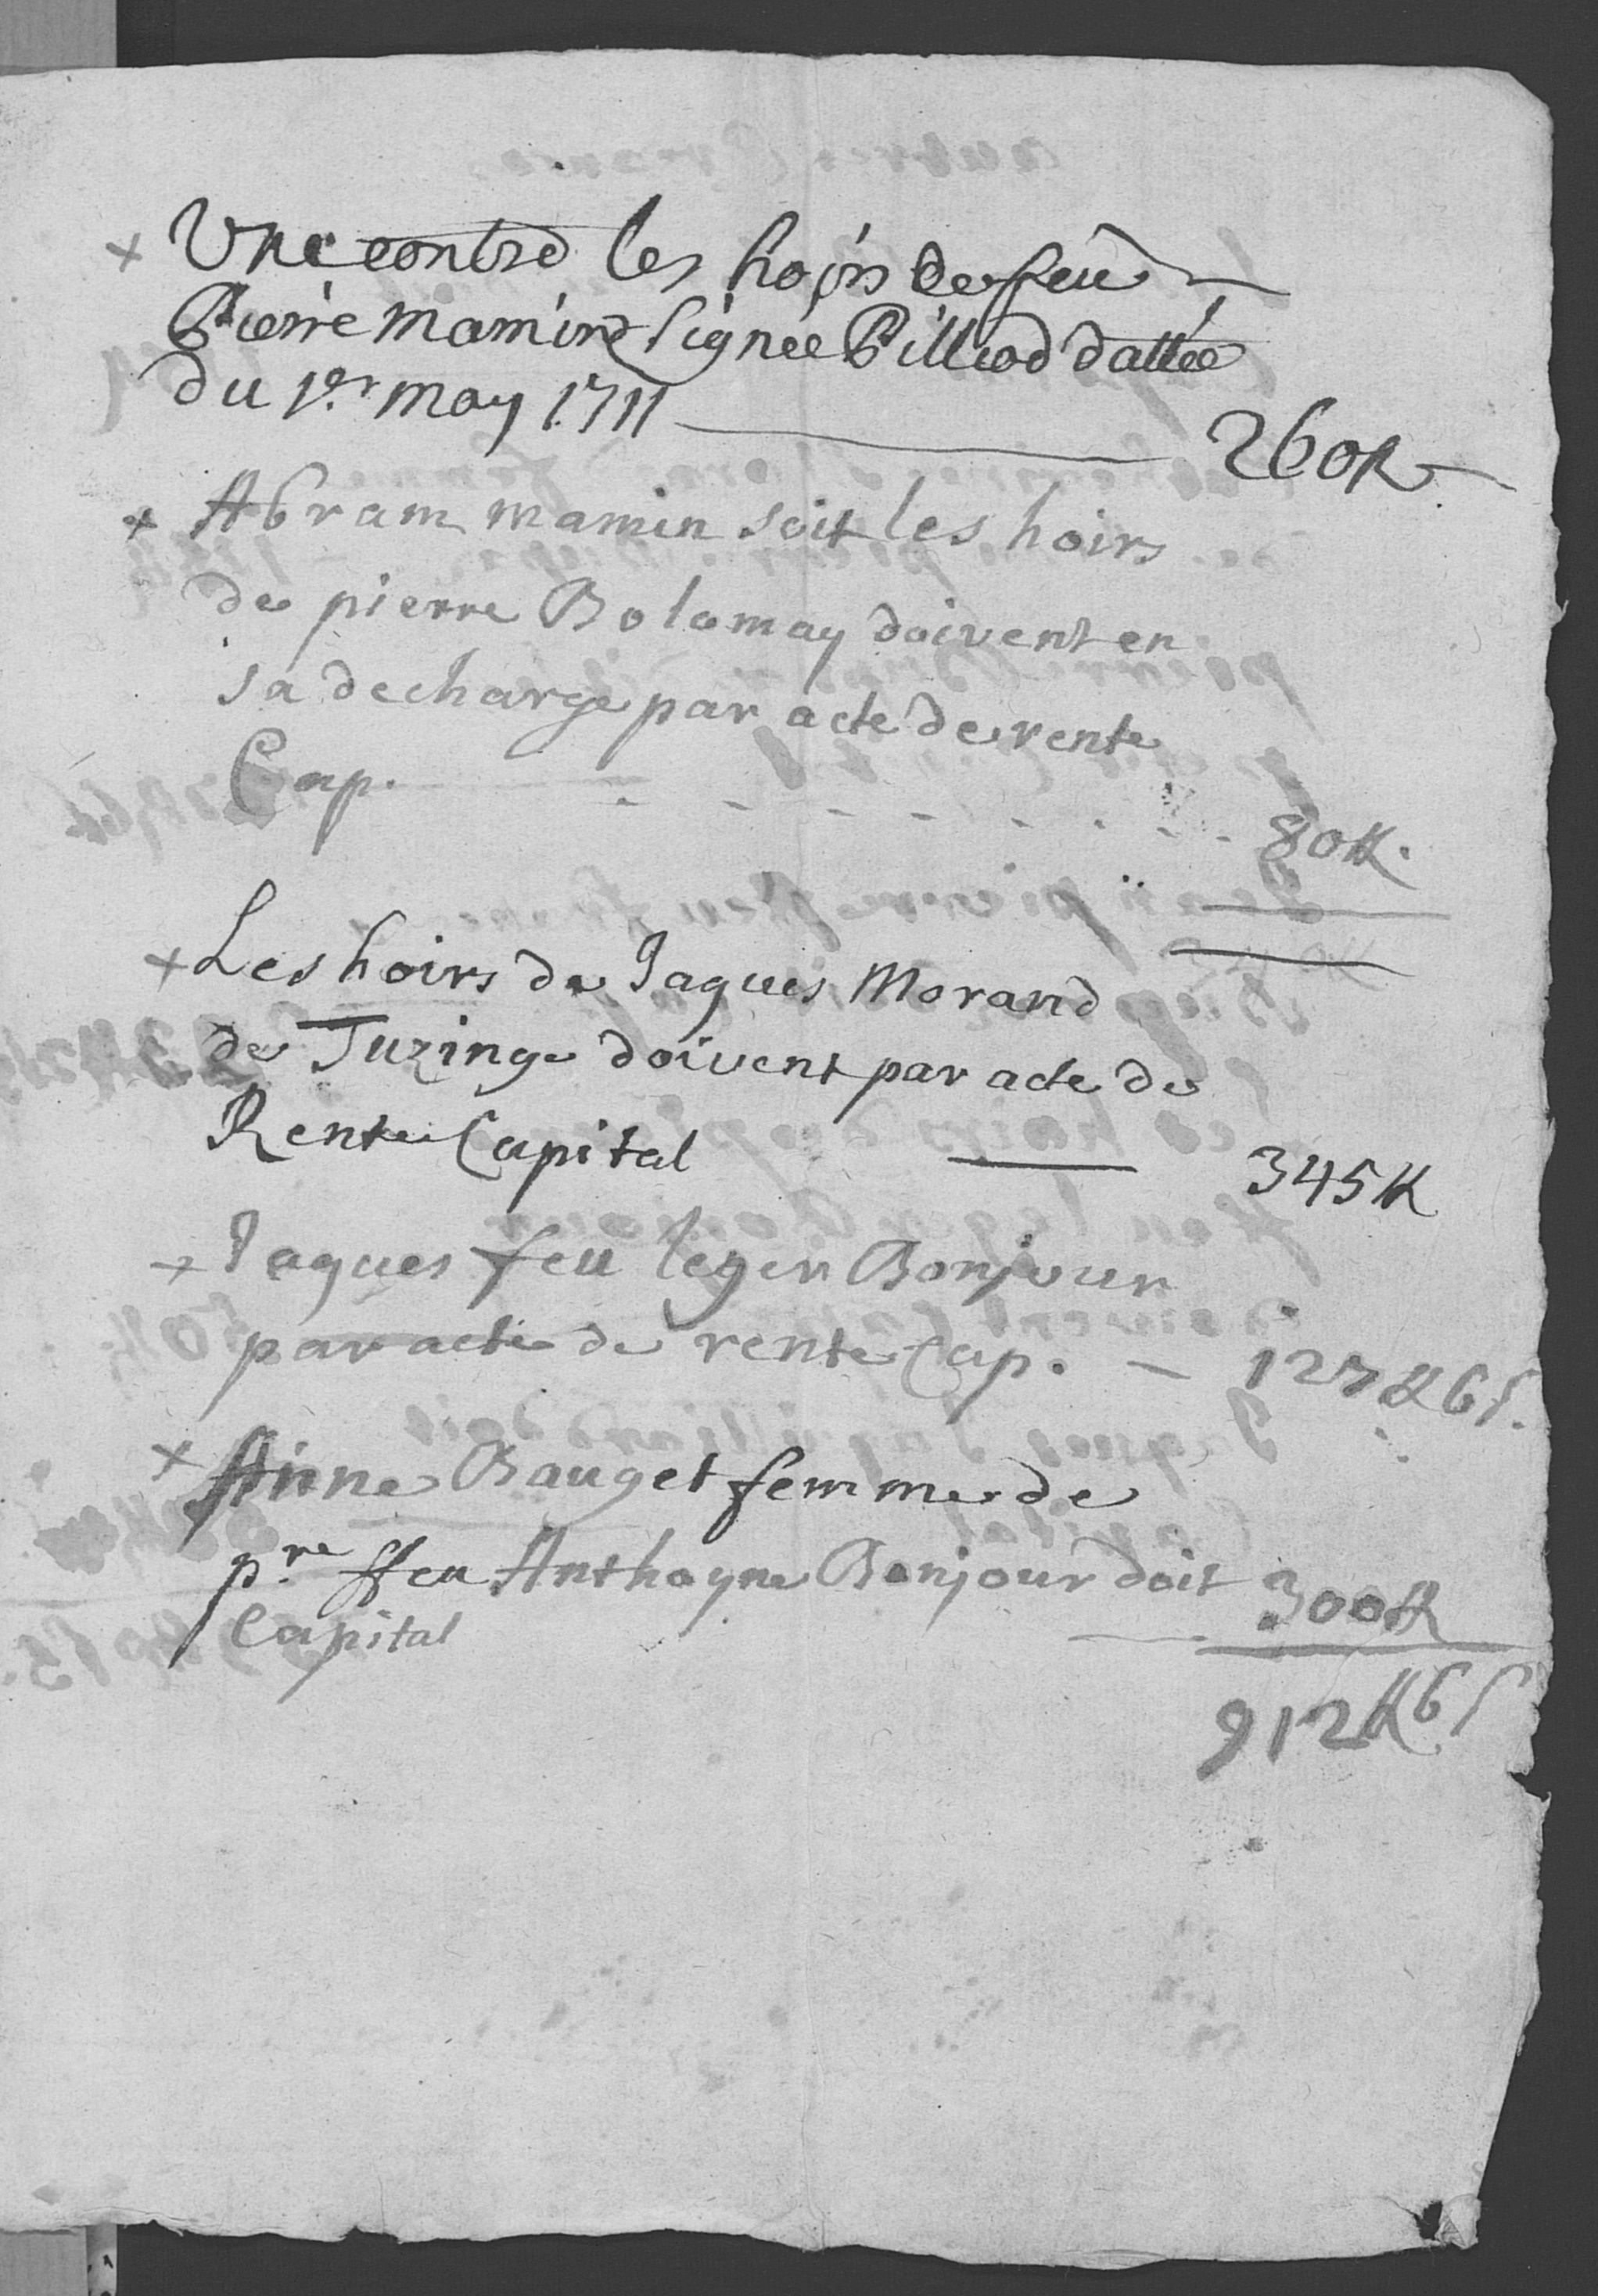 + Une contre les hoirs de feu
Pierre mamin Signée Pilliod dattée
du 1er may 1711 — 260 ₶
+ Abram mamin soit les hoirs
de pierre Bolomay doivent en
sa decharge par acte de rente
Cap. - - - - - - - 80 ₶.
+ Les hoirs de Jaques Morand
de Tuzinge doivent par acte de
Rente Capital — 345 ₶
+ Jaques feu leger Bonjour
par acte de rente Cap. — 127 ₶ 6 s.
+ Anne Bauget femme de
pre ffeu Anthoyne Bonjour doit 300 ₶
Capital
912 ₶ 6 s